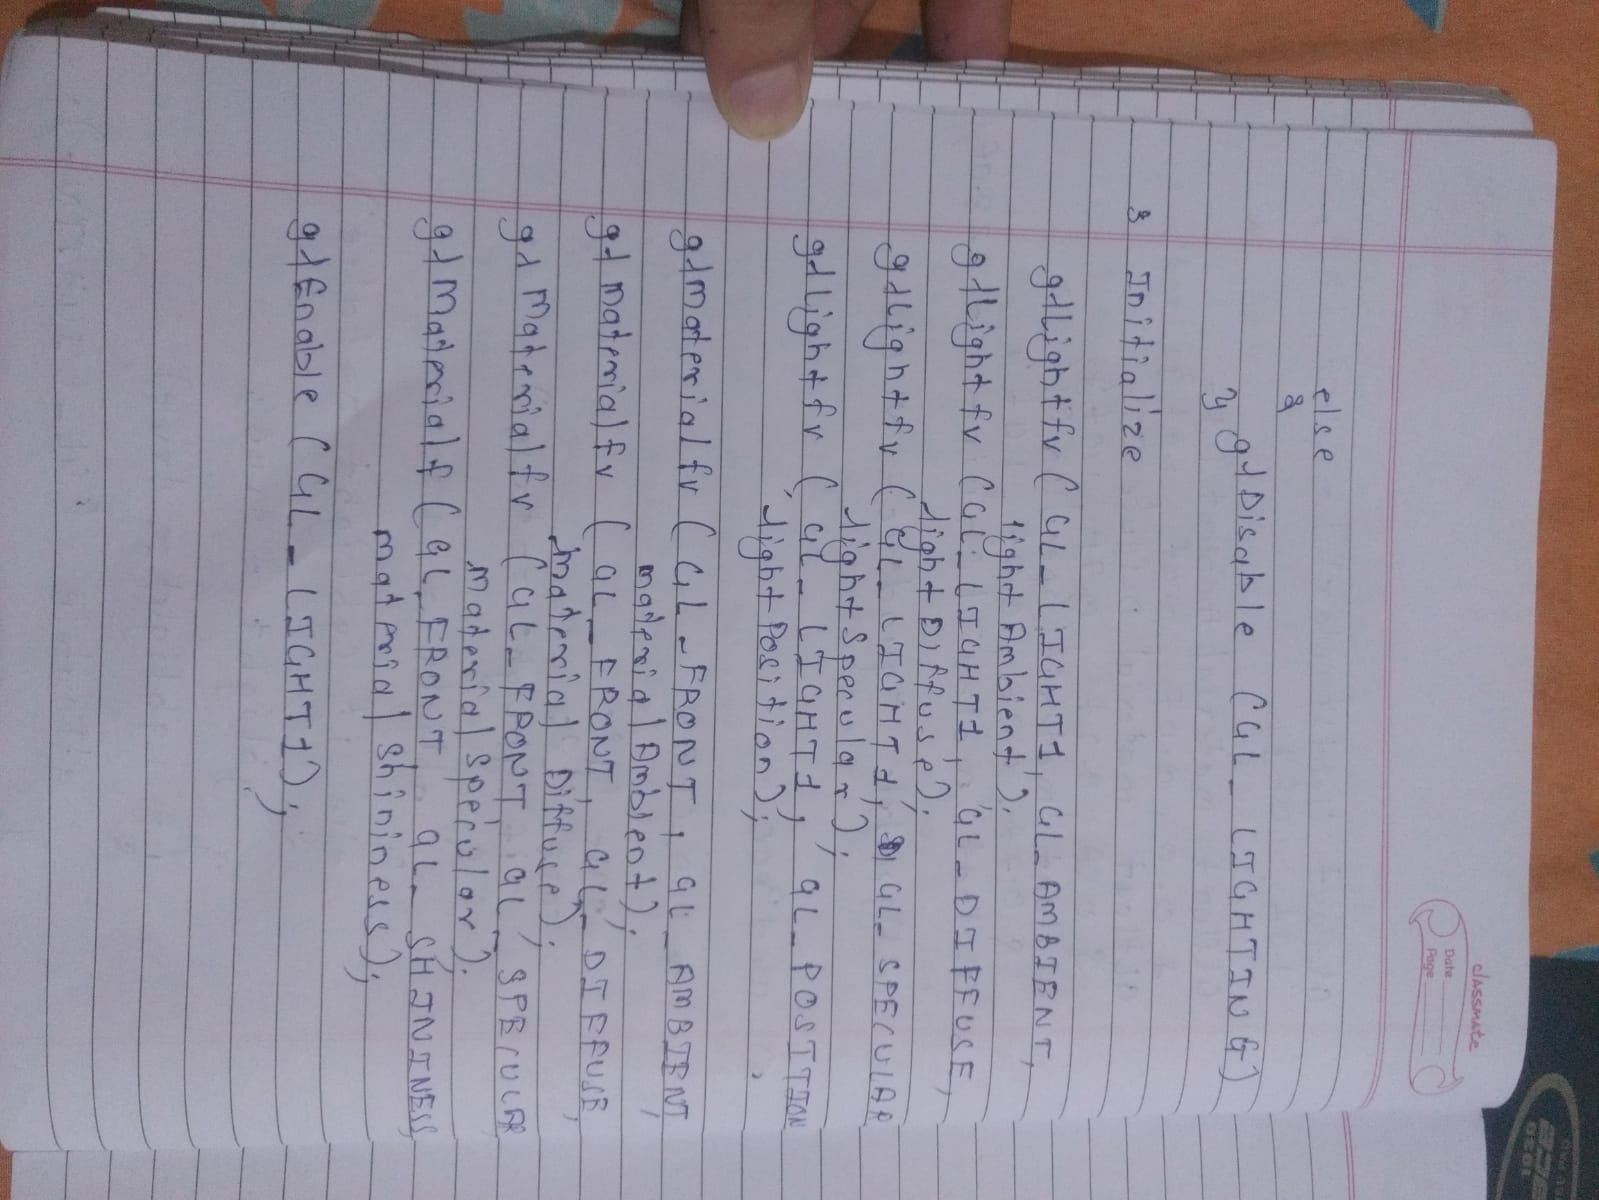 classmate
Date
Page
else
{
glDisable (GL_LIGHTING)
}
3 Initialize
glLightfv ( GL_LIGHT1, GL_AMBIENT,
lightAmbient );
glLightfv (GL_LIGHT1, GL_DIFFUSE,
lightDiffuse);
glLightfv ( GL_LIGHT1, GL_SPECULAR
lightSpecular);
glLightfv ( GL_LIGHT1, GL_POSITION,
lightPosition);
glMaterialfv ( GL_FRONT, GL_AMBIENT,
materialAmbient);
glMaterialfv ( GL_FRONT, GL_DIFFUSE,
materialDiffuse);
glMaterialfv (GL_FRONT, GL_SPECULAR
materialSpecular);
glMaterialf (GL_FRONT, GL_SHININESS,
materialShininess);
glEnable (GL_LIGHT1);